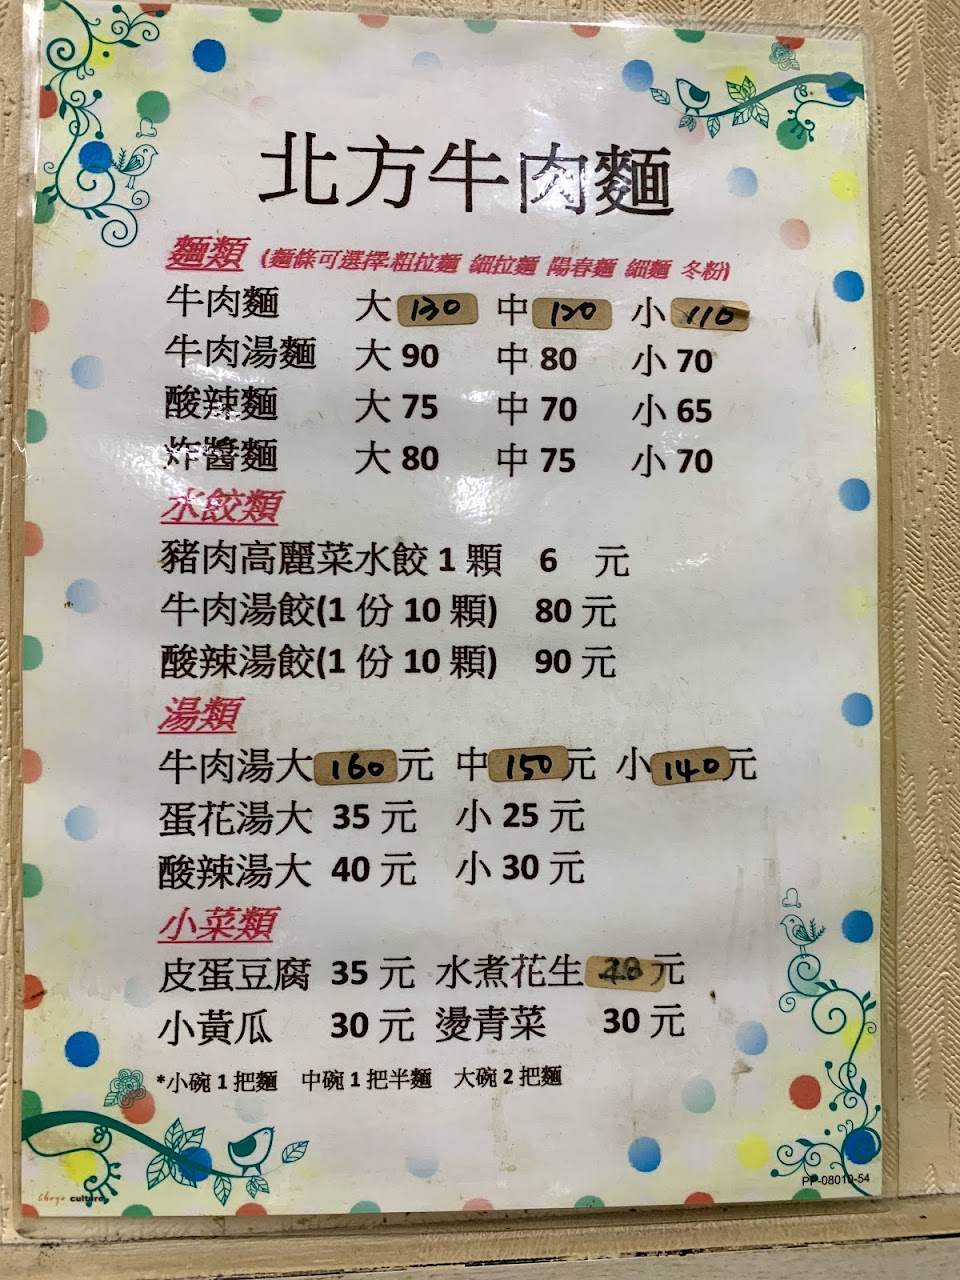 北方牛肉麵
麵類 (麵條可選擇:粗拉麵 細拉麵 陽春麵 細麵 冬粉)
牛肉麵 大 130 中 120 小 110
牛肉湯麵 大 90 中 80 小 70
酸辣麵 大 75 中 70 小 65
炸醬麵 大 80 中 75 小 70
水餃類
豬肉高麗菜水餃 1 顆 6 元
牛肉湯餃(1 份 10 顆) 80 元
酸辣湯餃(1 份 10 顆) 90 元
湯類
牛肉湯大 160 元 中 150 元 小 140 元
蛋花湯大 35 元 小 25 元
酸辣湯大 40 元 小 30 元
小菜類
皮蛋豆腐 35 元 水煮花生 元
小黃瓜 30 元 燙青菜 30 元
*小碗 1 把麵 中碗 1 把半麵 大碗 2 把麵
culture
PP-08010-54